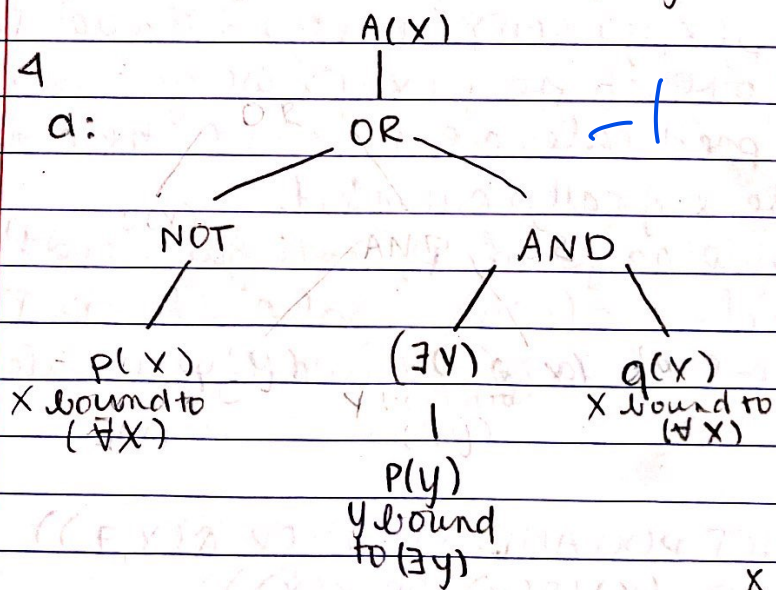 A(X)
4
a:
OR
-1
NOT
AND
p(X)
(∃Y)
q(X)
X bound to
(∀X)
X bound to
(∀X)
p(y)
y bound
to (∃y)
X